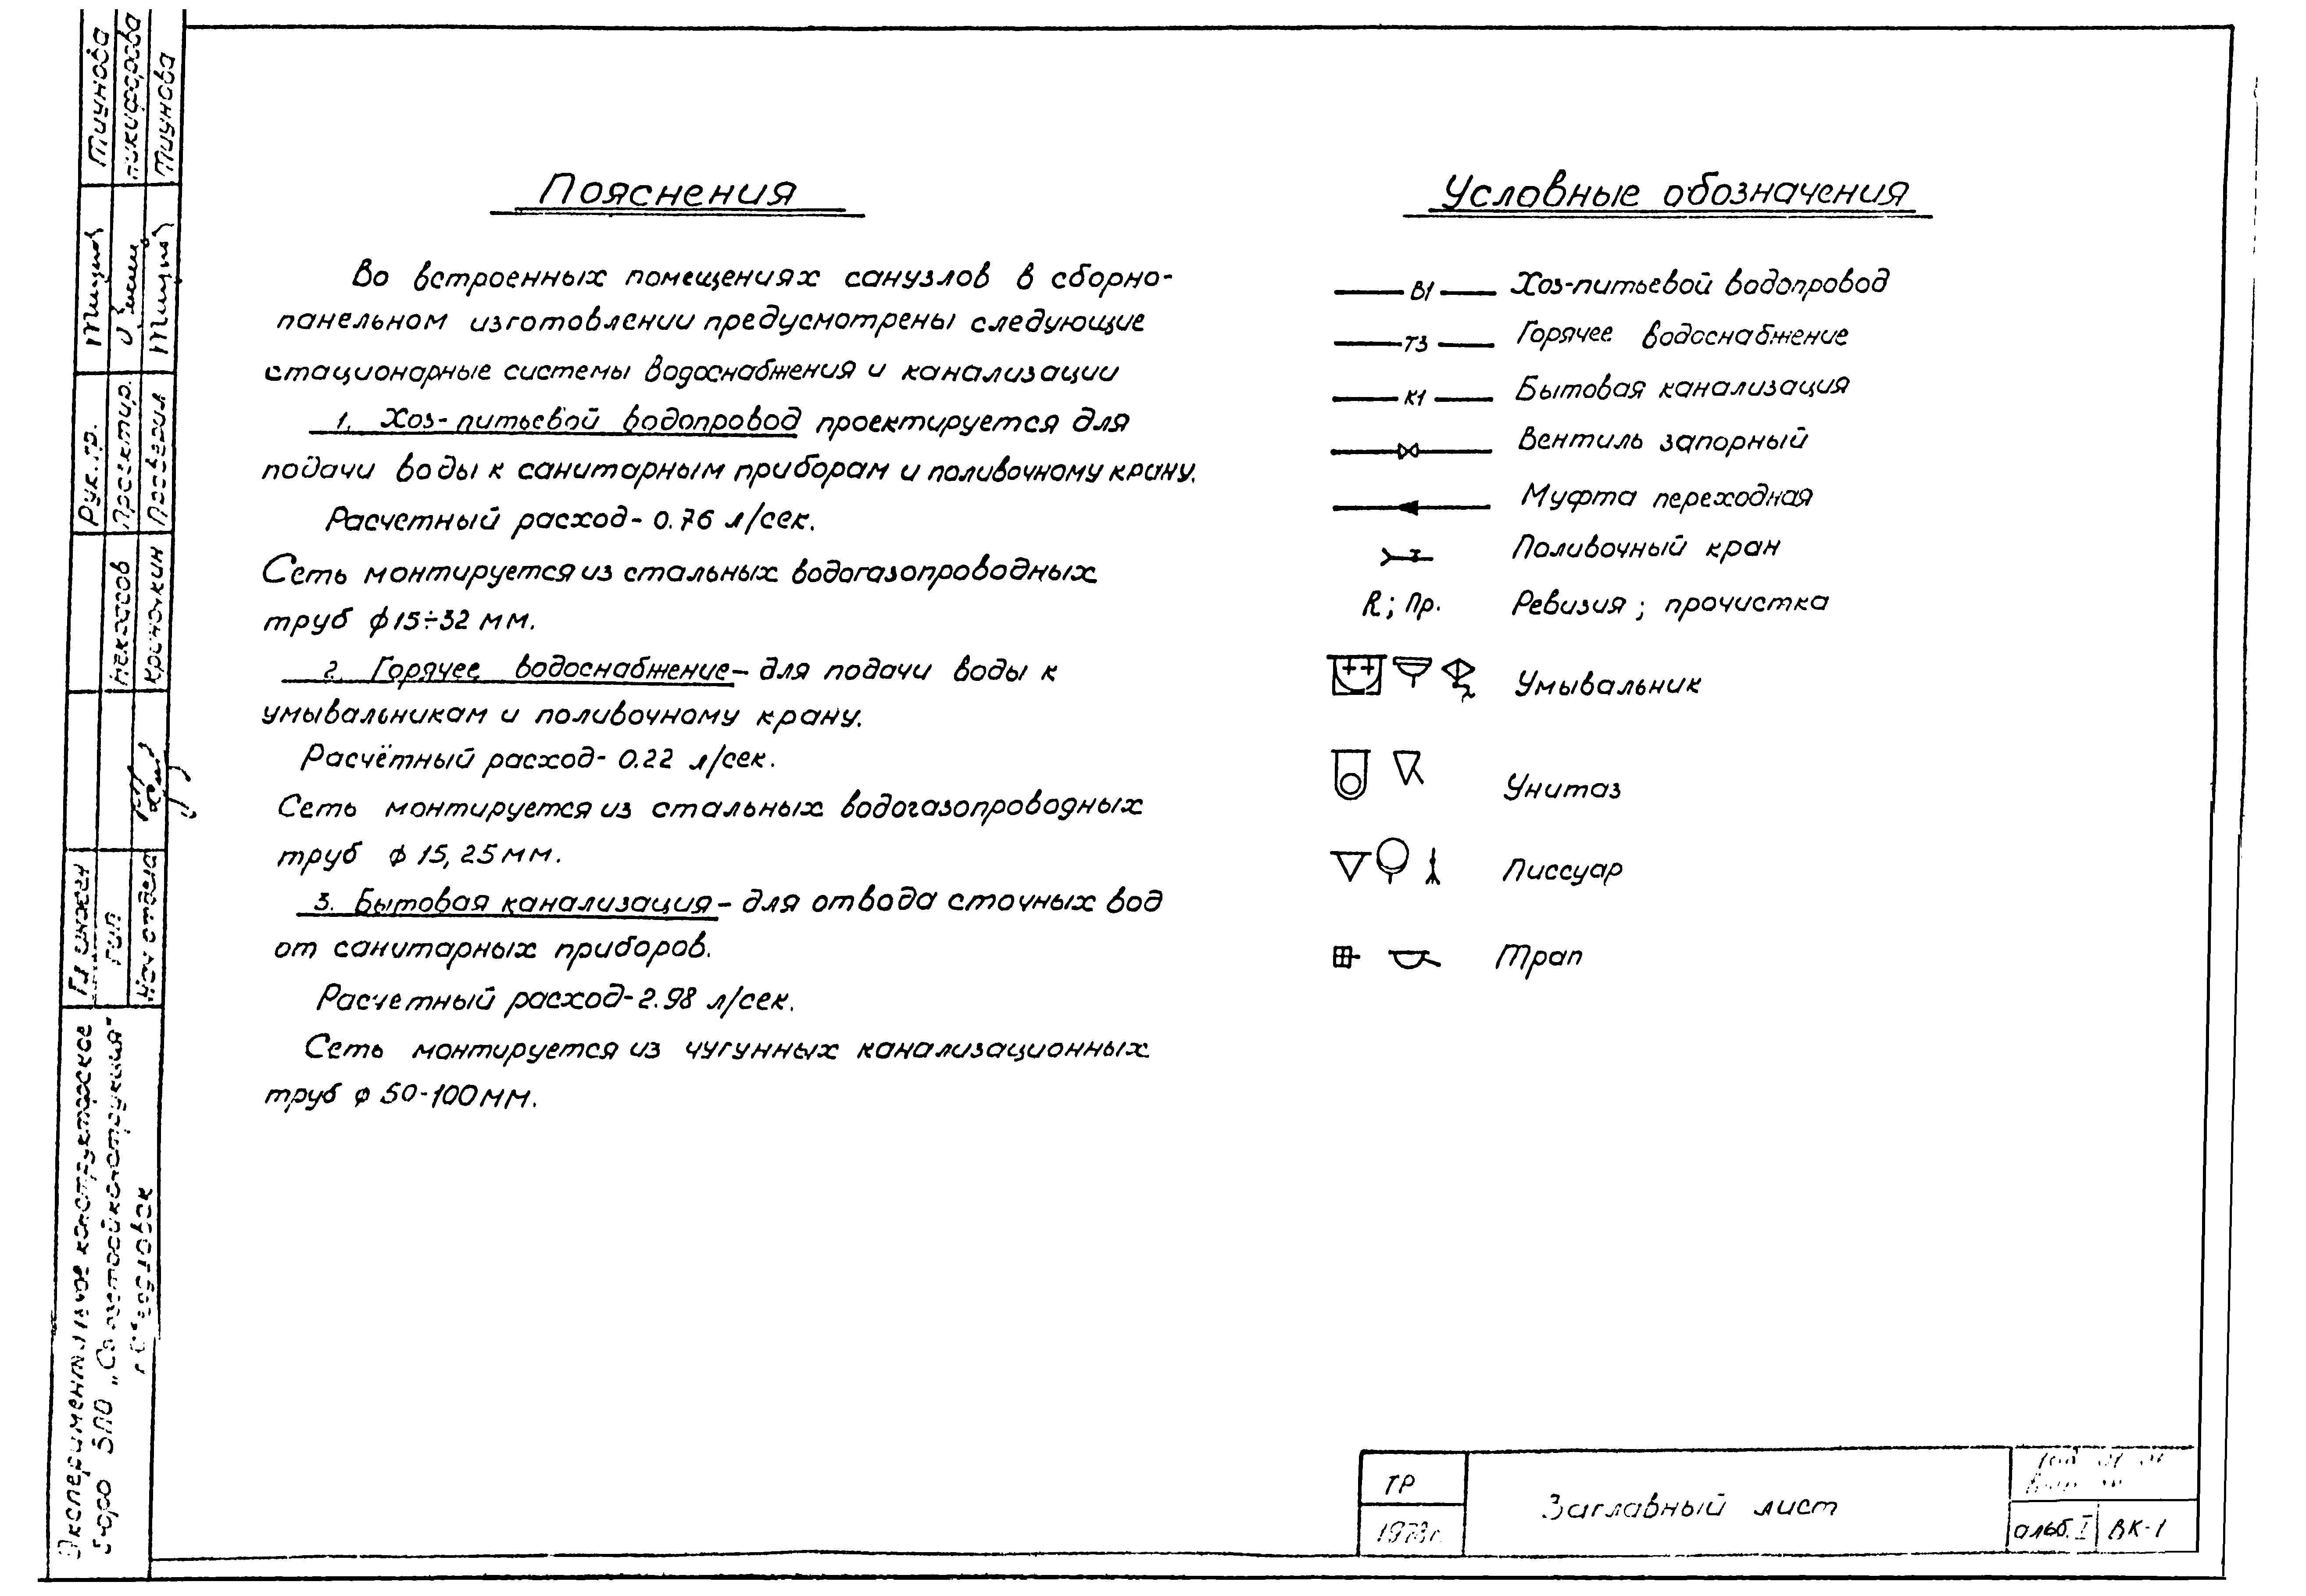 Пояснения
Во встроенных помещениях санузлов в сборно-
панельном изготовлении предусмотрены следующие
стационарные системы водоснабжения и канализации
1. Хоз-питьевой водопровод проектируется для
подачи воды к санитарным приборам и поливочному крану.
Расчетный расход - 0.76 л/сек.
Сеть монтируется из стальных водогазопроводных
труб ф 15÷32 мм.
2. Горячее водоснабжение - для подачи воды к
умывальникам и поливочному крану.
Расчётный расход - 0.22 л/сек.
Сеть монтируется из стальных водогазопроводных
труб ф 15, 25 мм.
3. Бытовая канализация - для отвода сточных вод
от санитарных приборов.
Расчетный расход - 2.98 л/сек.
Сеть монтируется из чугунных канализационных
труб ф 50-100 мм.
Условные обозначения
В1 Хоз-питьевой водопровод
Т3 Горячее водоснабжение
К1 Бытовая канализация
Вентиль запорный
Муфта переходная
Поливочный кран
R; Пр. Ревизия; прочистка
Умывальник
Унитаз
Писсуар
Трап
ТР
Заглавный лист
альб. I
ВК-1
Рук. гр. Тиунова
Проектир. Никифорова
Проверил Тиунова
Некрасов
ГИП
Нач отдела
Экспериментальное конструкторское
бюро